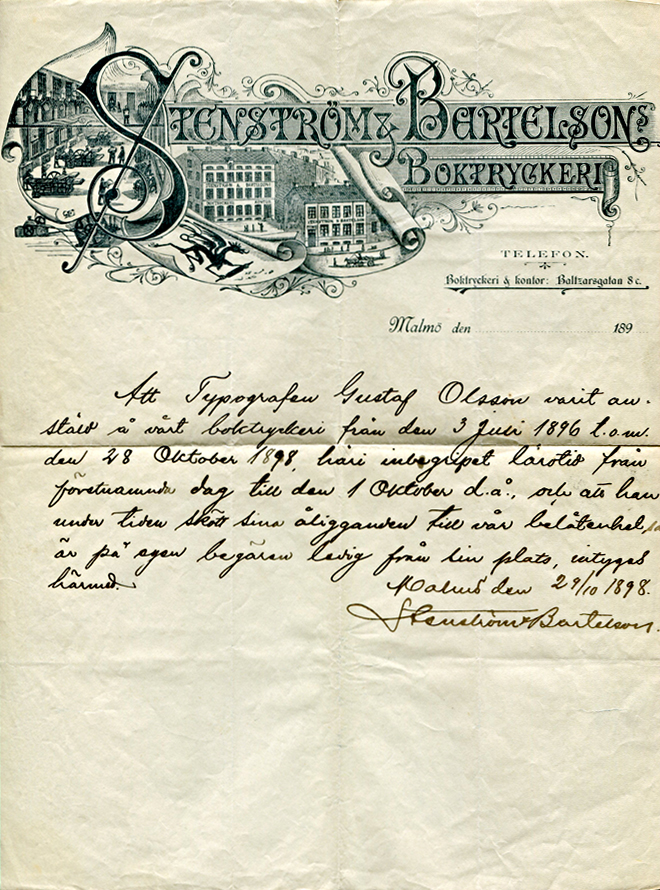 STENSTRÖM & BARTELSONS
BOKTRYCKERI
TELEFON.
Boktryckeri & kontor: Baltzarsgatan 8 c.
Malmö den 189
Att Typografen Gustaf Olsson varit an-
stäld å vårt boktryckeri från den 3 Juli 1896 t.o.m.
den 28 Oktober 1898, häri inbegripet lärotid från
förstnämnda dag till den 1 Oktober d.å., och att han
under tiden skött sina åligganden till vår belåtenhet,
är på egen begäran ledig från sin plats, intygas
härmed.
Malmö den 29/10 1898.
Stenström & Bartelson.